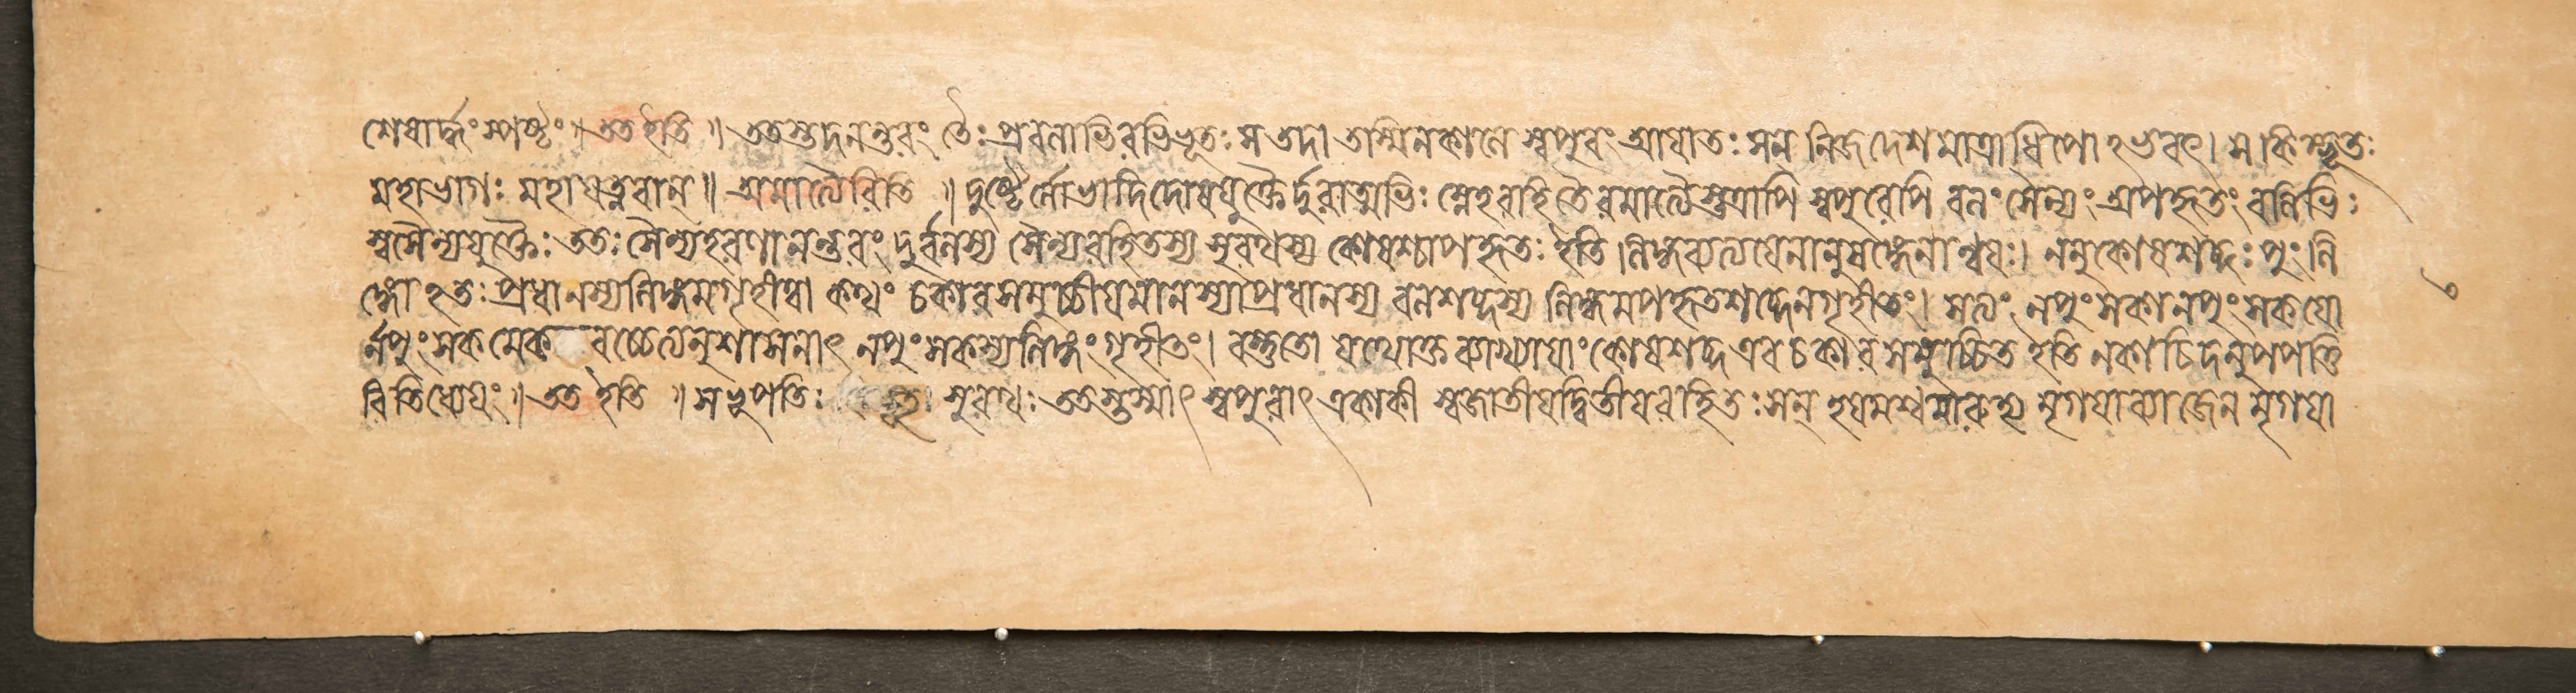 শেষার্দ্ধং স্পষ্টং ॥ তত ইতি ॥ ততস্তদনন্তরং তৈঃ প্রবলাভিরভিভূতঃ স তদা তস্মিনকালে স্বপুরং আয়াতঃ সন্ নিজদেশমাত্রাধিপো ঽভবৎ। স কিম্ভূতঃ
মহাভাগঃ মহাযত্নবান্ ॥ অমাত্যৈরিতি ॥ দুষ্টৈর্লোভাদিদোষযুক্তৈর্দুরাত্মভিঃ স্নেহরহিতৈরমাত্যৈস্তত্রাপি স্বপুরেপি বলং সৈন্যং অপহৃতং বলিভিঃ
স্বসৈন্যযুক্তৈঃ ততঃ সৈন্যহরণানন্তরং দুর্বলস্য সৈন্যরহিতস্য সুরথস্য কোষশ্চাপহৃতঃ ইতি লিঙ্গব্যত্যয়েনানুষঙ্গেনান্বয়ঃ। ননু কোষশব্দঃ পুংলি
ঙ্গো ঽতঃ প্রধানস্য লিঙ্গমগৃহীত্বা কথং চকারসমুচ্চীয়মানস্যাপ্রধানস্য বলশব্দস্য লিঙ্গমপহৃতশব্দেন গৃহীতং। সত্যং নপুংসকানপুংসকয়ো
র্নপুংসকমেক বচ্চেত্যনুশাসনাৎ নপুংসকস্য লিঙ্গং গৃহীতং। বস্তুতো যথোক্তব্যাখ্যায়াং কোষশব্দ এব চকারসমুচ্চিত ইতি ন কাচিদনুপপত্তি
রিতি ধ্যেয়ং ॥ তত ইতি ॥ স ভূপতিঃ সুরথঃ ততস্তস্মাৎ স্বপুরাৎ একাকী স্বজাতীয়দ্বিতীয়রহিতঃ সন্ হয়মশ্বমারুহ্য মৃগয়াব্যাজেন মৃগয়া